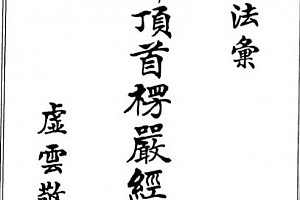 法彙
頂首楞嚴經
虛雲敬